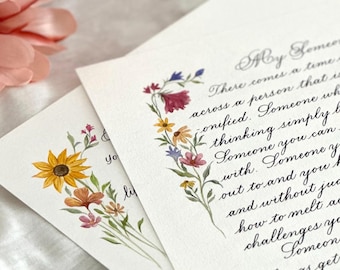 My Someo
There comes a time
across a person that is
onified. Someone wh
thinking simply b
Someone you can
with. Someone y
out to and you k
and without jud
how to melt a
challenges y
Someon
as get
yo
li